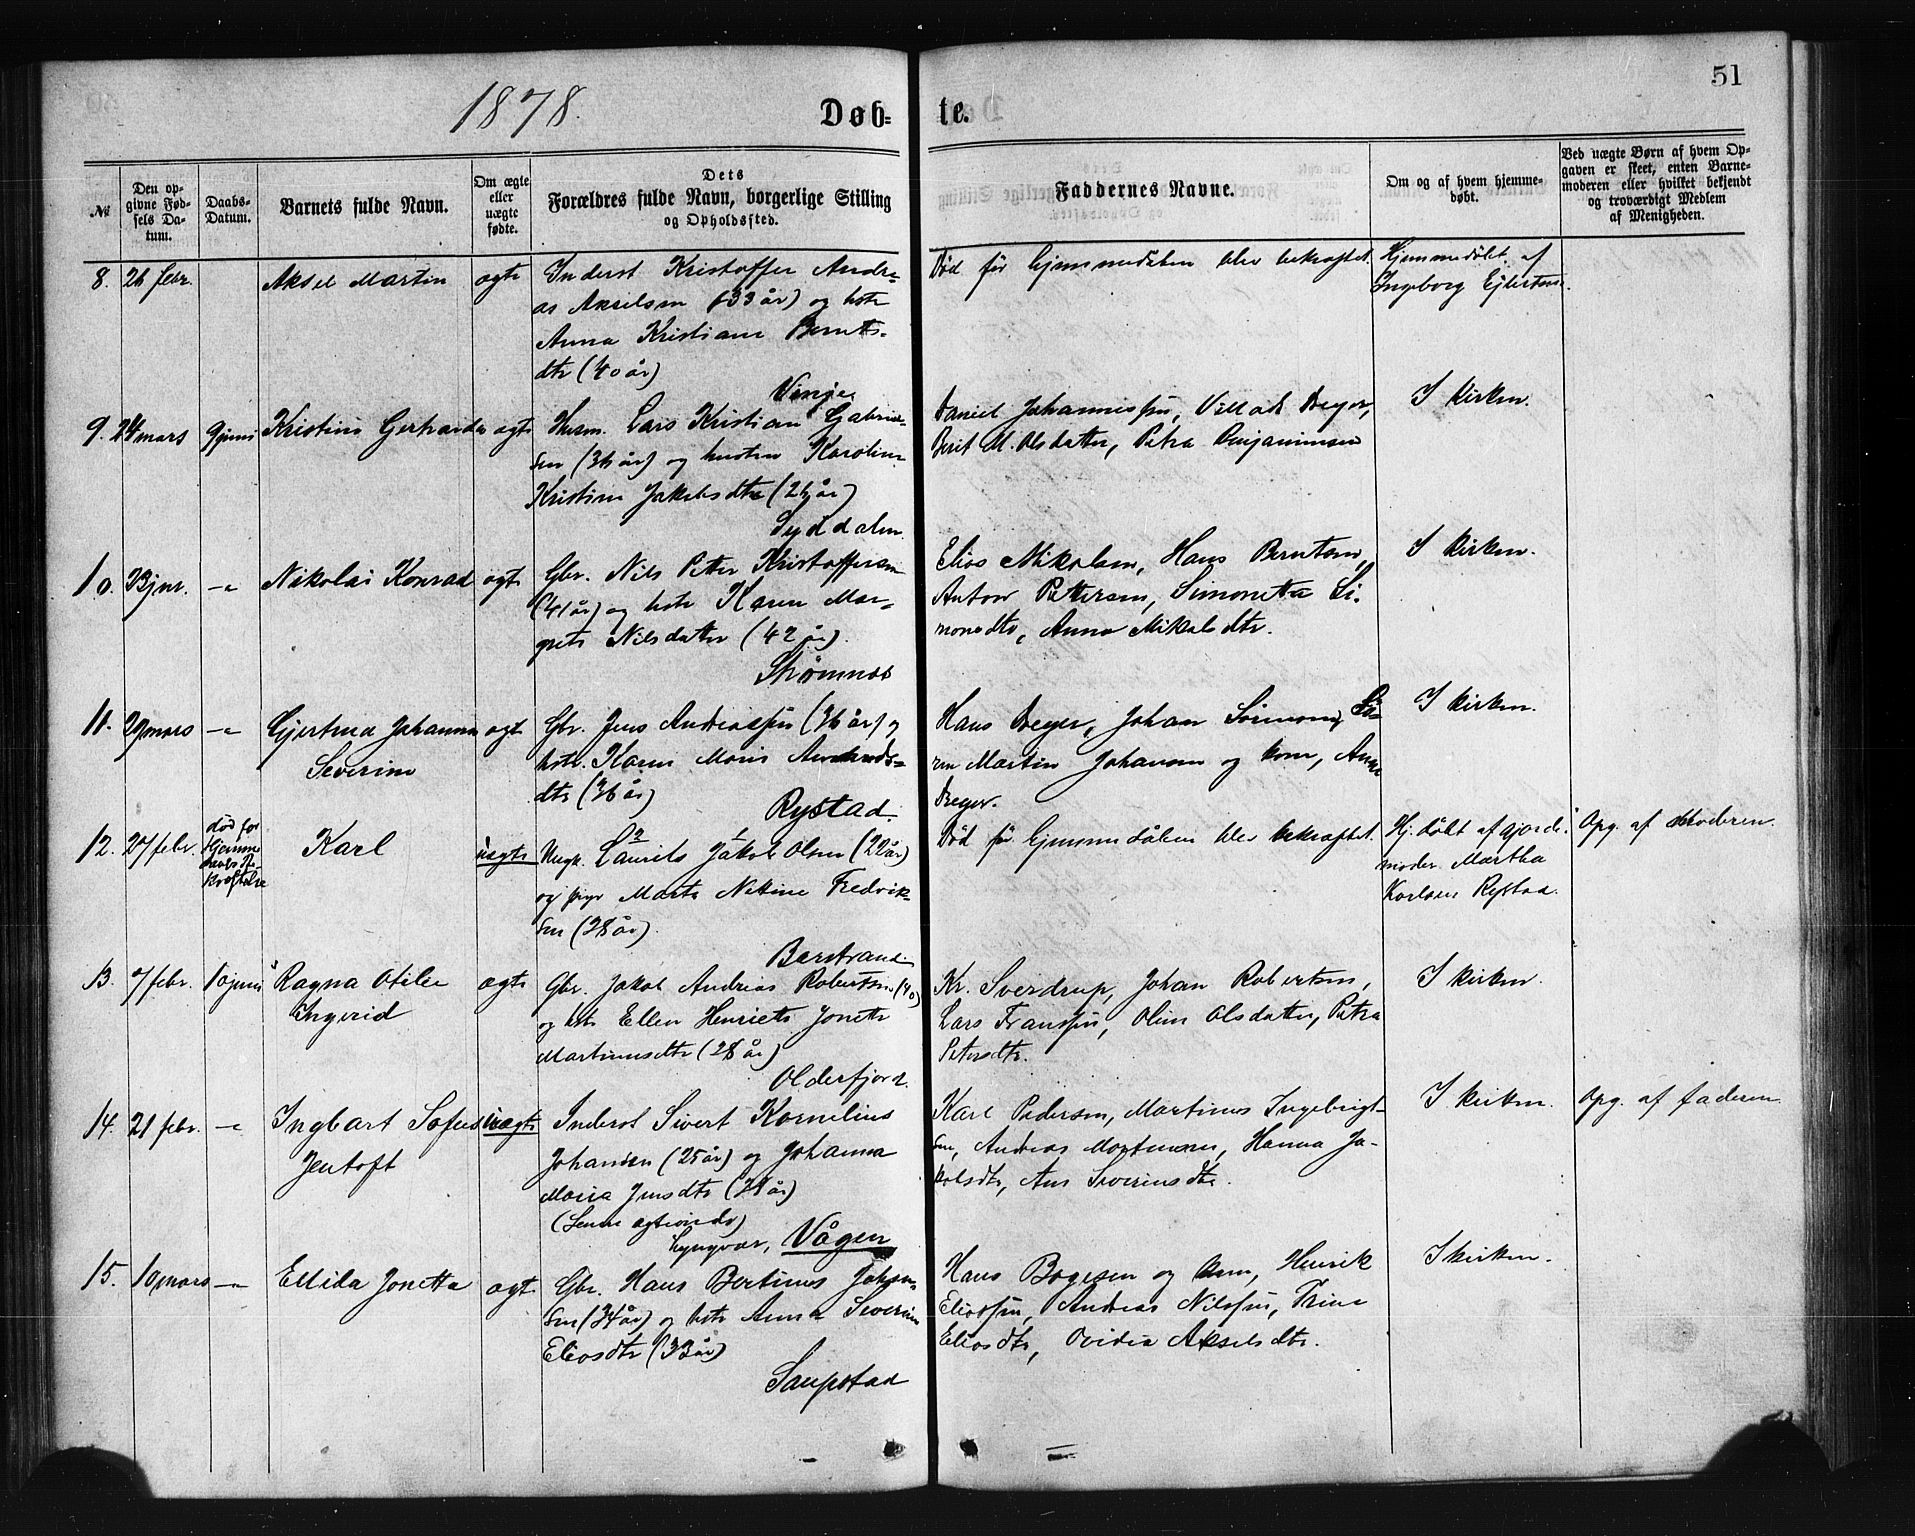 1878.
Døb-
te.
51
№
Den op-
givne Fød-
sels Da-
tum.
Daabs-
Datum.
Barnets fulde Navn.
Om ægte
eller
uægte
fødte.
Dets
Forældres fulde Navn, borgerlige Stilling
og Opholdssted.
Faddernes Navne.
Om og af hvem hjemme-
døbt.
Ved uægte Børn af hvem Op-
gaven er skeet, enten Barne-
moderen eller hvilket bekjendt
og troværdigt Medlem
af Menigheden.
8. 26 febr.
Aksel Martin
ægte
Inderst Kristoffer Andre-
as Akselsen (33 år) og hstr
Anna Kristiane Bernts-
dtr (40 år)
Vinje
Død før hjemmedåben blev bekræftet.
Hjemmedøbt af
Ingeborg Ejlertsen.
9. 24 mars
9 juni
Kristine Gertrarda
ægte
Husm. Lars Kristian Gabriel-
sen (36 år) og hustru Karoline
Kristine Jakobsdtr (26 år)
Syddalen
Daniel Johannessen, Villads Beyer,
Berit M. Olsdatter, Petra Benjaminsen
I kirken.
10. 23 jnr.
-"-
Nikolai Konrad
ægte
Gbr. Nils Peter Kristoffersen
(41 år) og hstr Karen Mar-
grete Nilsdatter (42 år).
Strømnes
Elias Mikalsen, Hans Berntsen,
Anton Pettersen, Simonette Si-
monsdtr, Anna Mikalsdtr.
I kirken.
11. 29 mars
-"-
Gjertrua Johanna
Severine
ægte
Gbr. Jens Andreassen (36 år) og
hstr. Karen Marie Amundsd-
dtr (36 år)
Rystad.
Hans Beyer, Johan Simonsen, Sø-
ren Martin Johansen og kone, Anne
Beyer.
I kirken.
12. 27 febr.
død før
hjemme
daabs be
kræftelse
Karl
uægte
Ungk. Laurits Jakob Olsen (22 år)
og pige Marta Nekine Fredrik-
sen (28 år).
Borstrand
Død før hjemmedåben blev bekræftet.
Hj. døbt af gjorde-
moder Martha
Karlsen Rystad.
Opg. af Moderen.
13. 7 febr.
10 juni
Ragna Otilie
Ingerid
ægte
Gbr. Jakob Andreas Robertsen (40)
og hstr Ellen Henriette Jonette
Martinusdtr (28 år)
Olderfjord.
Kr. Sverdrup, Johan Robertsen,
Lars Franssen, Oline Olsdatter, Petra
Petersdtr.
I kirken.
14. 21 febr.
-"-
Ingbart Sofus
Jentoft
uægte
Inderst Sivert Kornelius
Johansen (25 år) og Johanna
Maria Jensdtr (21 år)
(Senere ægteviede)
Lyngvær, Vågen
Karl Pedersen, Martinus Ingebrigt-
sen, Andreas Mortensen, Hanna Ja-
kobsdtr, Ane Severinsdtr.
I kirken.
Opg. af faderen
15. 10 mars
-"-
Ellida Jonetta
ægte
Gbr. Hans Bertinus Johan-
sen (34 år) og hstr Anna Severine
Eliasdtr (33 år)
Saupstad
Hans Bogesen og kone, Henrik
Eliassen, Andreas Nilssen, Trine
Eliasdtr, Ovidia Akselsdtr.
I kirken.